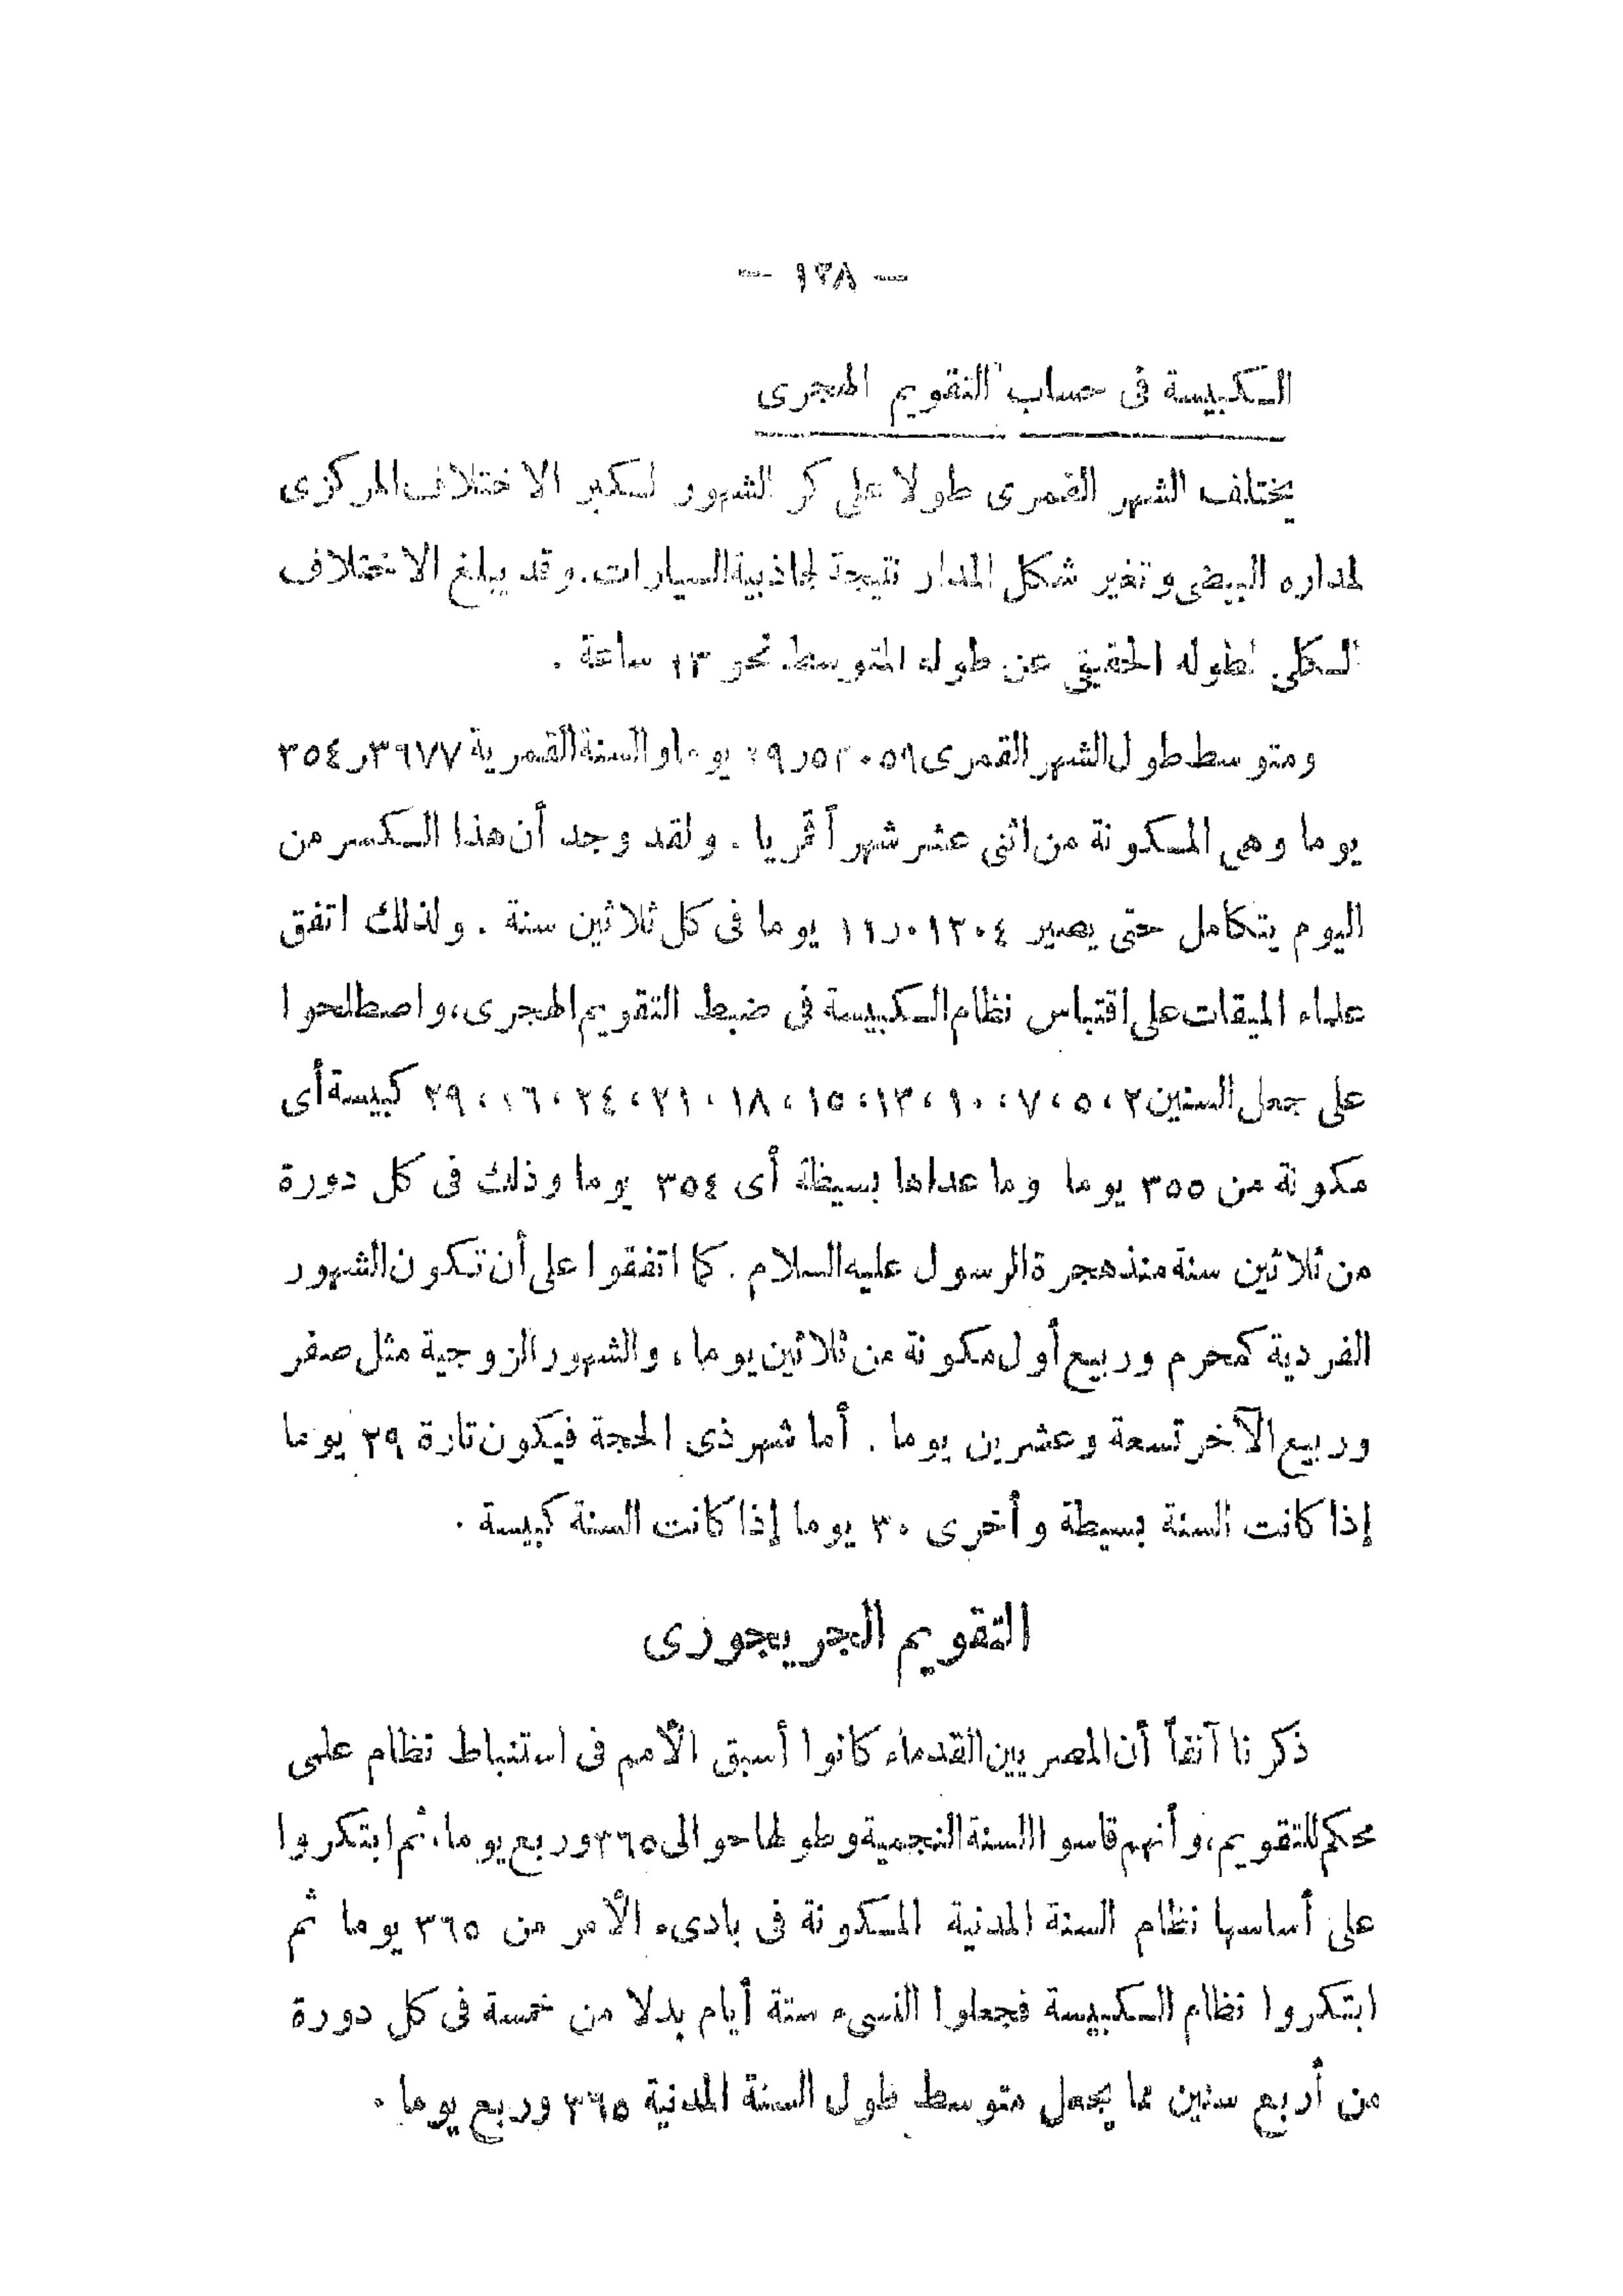 — ١٣٨ —
الكبيسة فى حساب التقويم الهجرى
يختلف الشهر القمرى طولا على كر الشهور لكبر الاختلاف المركزى
لمداره البيضى وتغير شكل المدار نتيجة لجاذبية السيارات. وقد يبلغ الاختلاف
الكلى لطوله الحقيقى عن طوله المتوسط نحو ١٣ ساعة .
ومتوسط طول الشهر القمرى ٢٩ر٥٣٠٥٩ يوما والسنة القمرية ٣٥٤ر٣٩٧٧
يوما وهى المكونة من اثنى عشر شهراً قمريا . ولقد وجد أن هذا الكسر من
اليوم يتكامل حتى يصير ١١ر٠١٣٠٤ يوما فى كل ثلاثين سنة . ولذلك اتفق
علماء الميقات على اقتباس نظام الكبيسة فى ضبط التقويم الهجرى، واصطلحوا
على جعل السنين ٢ ، ٥ ، ٧ ، ١٠ ، ١٣ ، ١٥ ، ١٨ ، ٢١ ، ٢٤ ، ٢٦ ، ٢٩ كبيسة أى
مكونة من ٣٥٥ يوما وما عداها بسيطة أى ٣٥٤ يوما وذلك فى كل دورة
من ثلاثين سنة منذ هجرة الرسول عليه السلام . كما اتفقوا على أن تكون الشهور
الفردية كمحرم وربيع أول مكونة من ثلاثين يوما ، والشهور الزوجية مثل صفر
وربيع الآخر تسعة وعشرين يوما . أما شهر ذى الحجة فيكون تارة ٢٩ يوما
إذا كانت السنة بسيطة وأخرى ٣٠ يوما إذا كانت السنة كبيسة .
التقويم الجريجورى
ذكرنا آنفاً أن المصريين القدماء كانوا أسبق الأمم فى استنباط نظام علمى
محكم للتقويم، وأنهم قاسوا السنة النجمية وطولها حوالى ٣٦٥ وربع يوما، ثم ابتكروا
على أساسها نظام السنة المدنية المكونة فى بادىء الأمر من ٣٦٥ يوما ثم
ابتكروا نظام الكبيسة فجعلوا النسىء ستة أيام بدلا من خمسة فى كل دورة
من أربع سنين مما يجعل متوسط طول السنة المدنية ٣٦٥ وربع يوما .